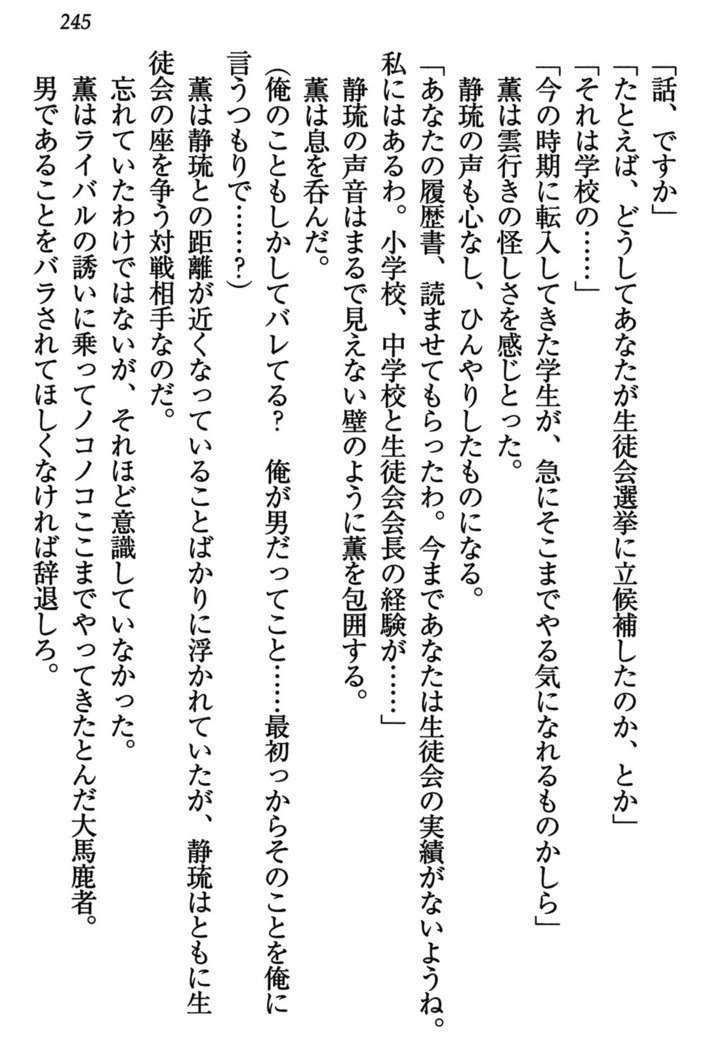 245
「話、ですか」
「たとえば、どうしてあなたが生徒会選挙に立候補したのか、とか」
「それは学校の……」
「今の時期に転入してきた学生が、急にそこまでやる気になれるものかしら」
薫は雲行きの怪しさを感じとった。
静琉の声も心なし、ひんやりしたものになる。
「あなたの履歴書、読ませてもらったわ。今まであなたは生徒会の実績がないようね。
私にはあるわ。小学校、中学校と生徒会会長の経験が……」
静琉の声音はまるで見えない壁のように薫を包囲する。
薫は息を呑んだ。
(俺のこともしかしてバレてる?　俺が男だってこと……最初っからそのことを俺に
言うつもりで……?)
薫は静琉との距離が近くなっていることばかりに浮かれていたが、静琉はともに生
徒会の座を争う対戦相手なのだ。
忘れていたわけではないが、それほど意識していなかった。
薫はライバルの誘いに乗ってノコノコここまでやってきたとんだ大馬鹿者。
男であることをバラされてほしくなければ辞退しろ。